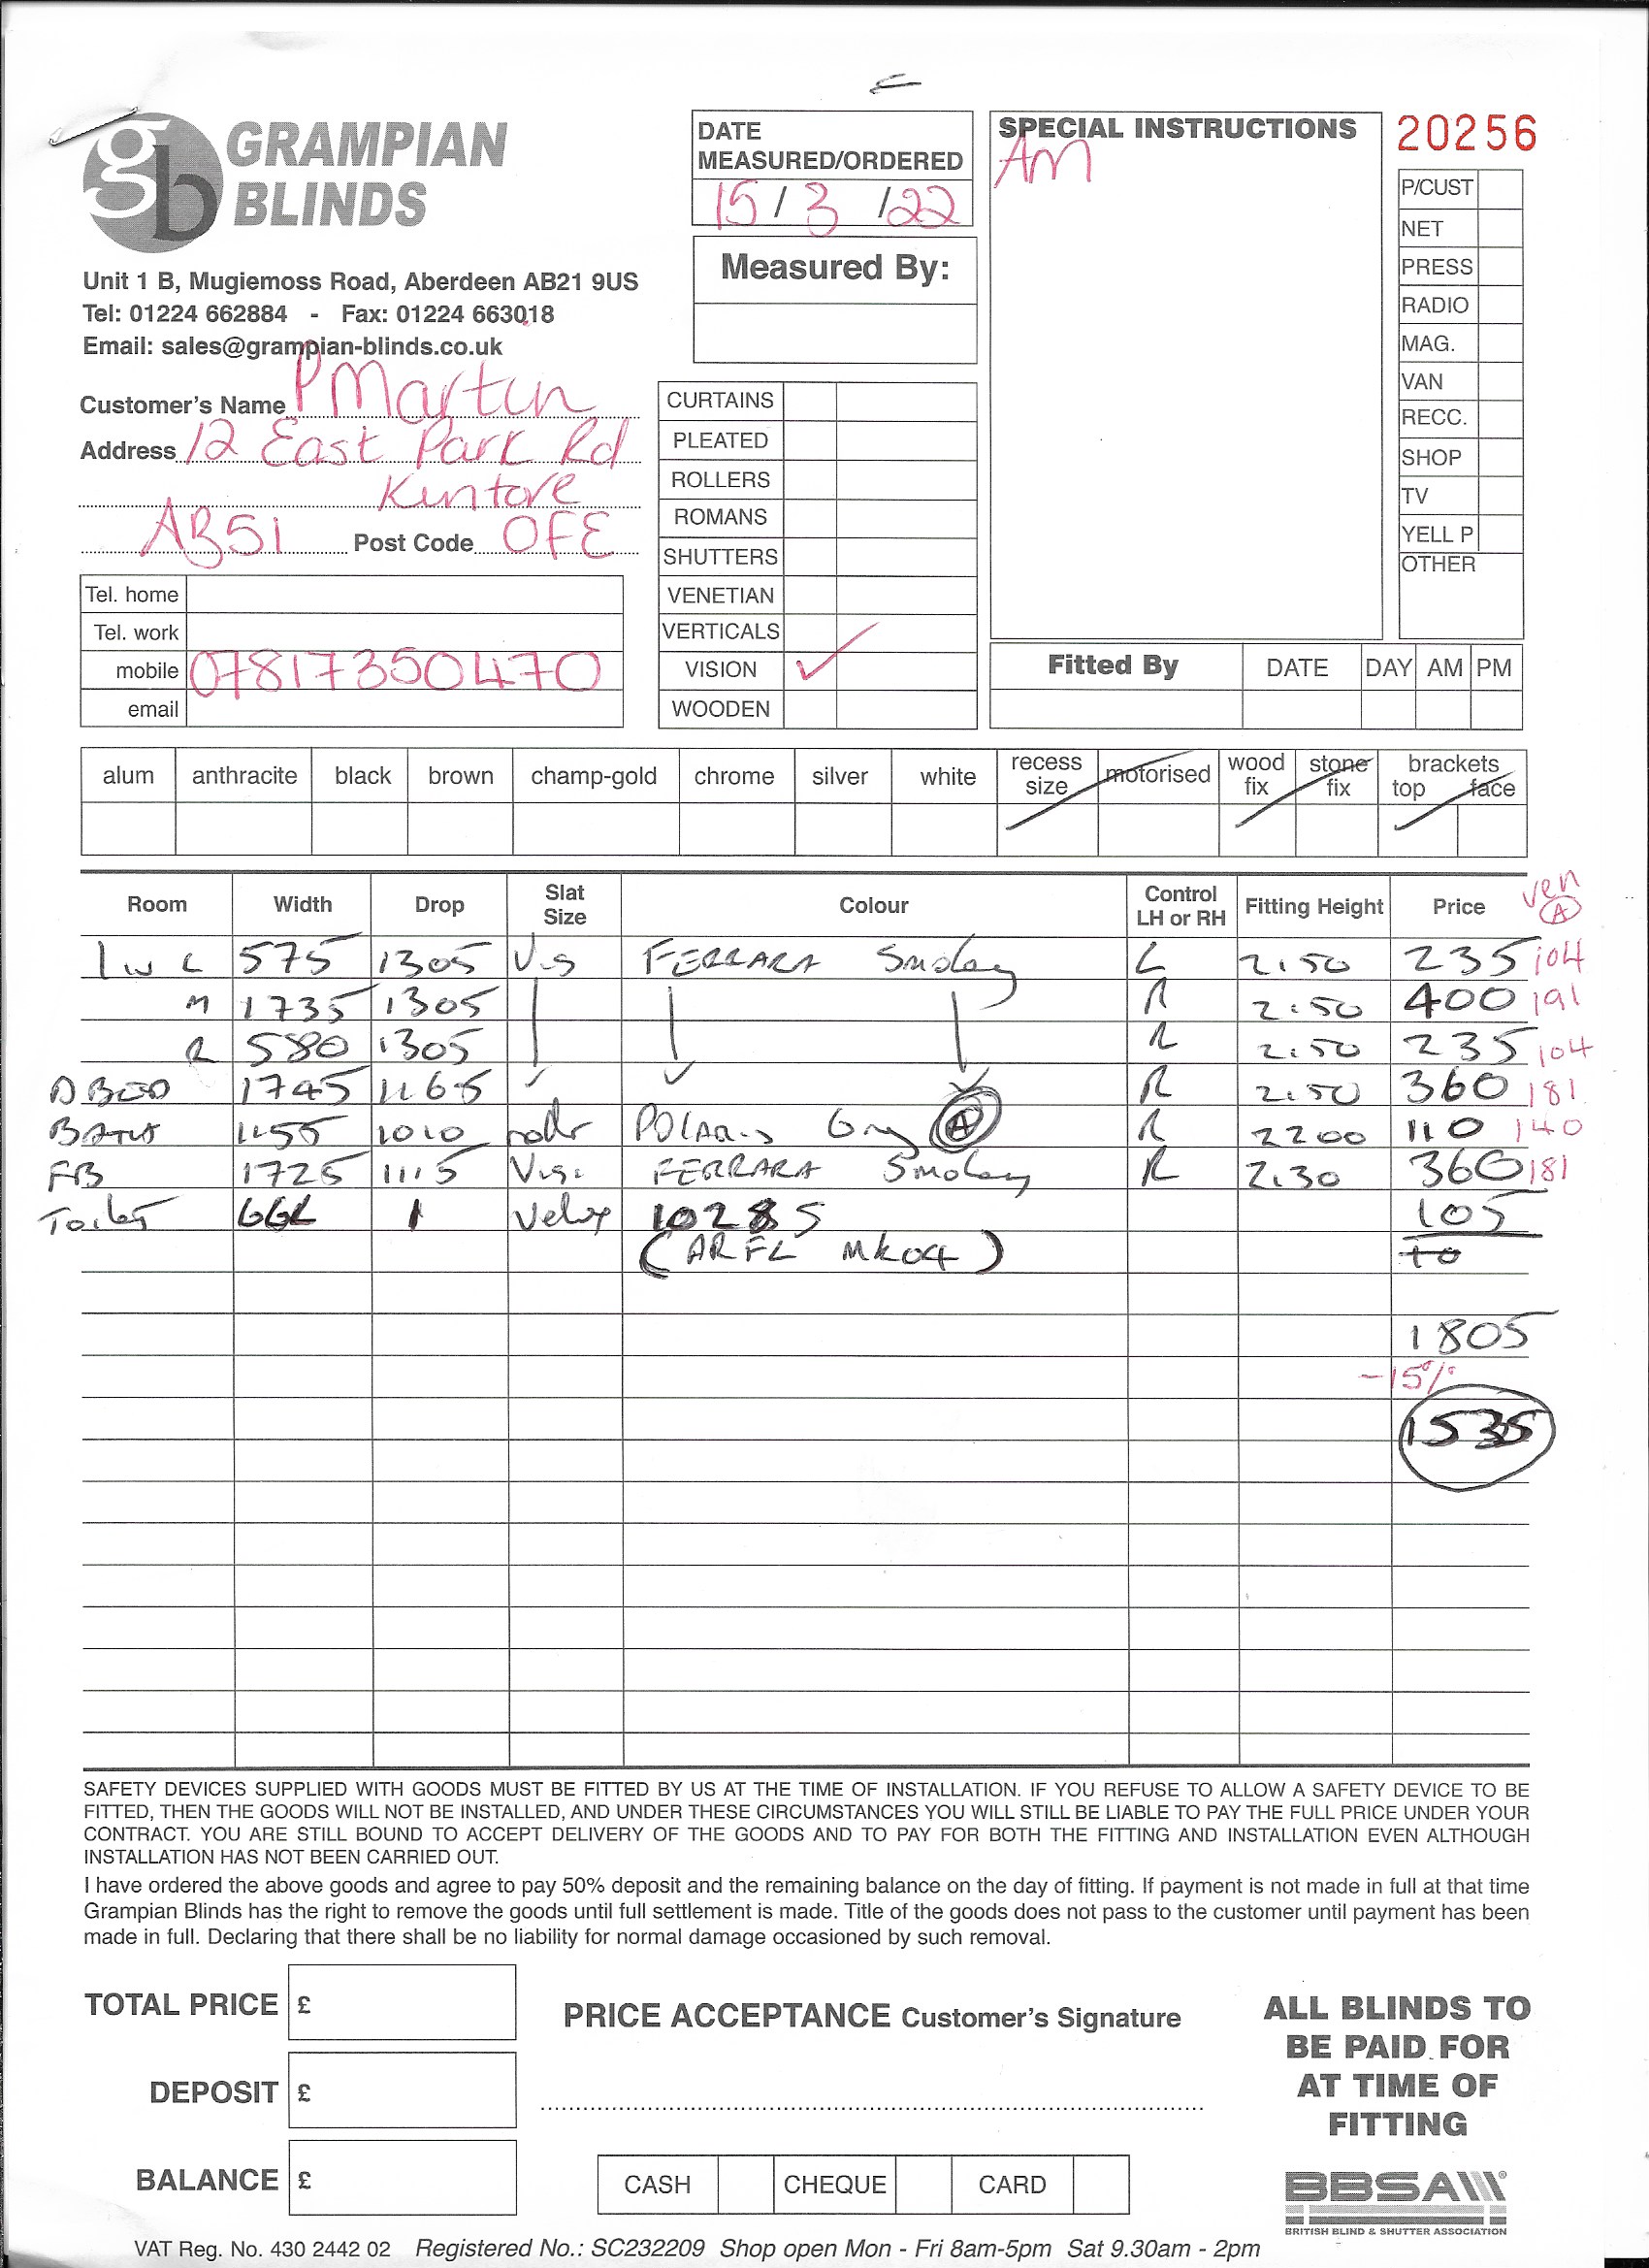 GRAMPIAN
BLINDS
Unit 1 B, Mugiemoss Road, Aberdeen AB21 9US
Tel: 01224 662884 - Fax: 01224 663018
Email: sales@grampian-blinds.co.uk
Customer's Name P Martin
Address 12 East Park Rd
Kintore
AB51 Post Code 0FE
Tel. home
Tel. work
mobile 07817350470
email
DATE
MEASURED/ORDERED
15/3/22
Measured By:
CURTAINS
PLEATED
ROLLERS
ROMANS
SHUTTERS
VENETIAN
VERTICALS
VISION ✓
WOODEN
SPECIAL INSTRUCTIONS
AM
20256
P/CUST
NET
PRESS
RADIO
MAG.
VAN
RECC.
SHOP
TV
YELL P
OTHER
Fitted By DATE DAY AM PM
alum anthracite black brown champ-gold chrome silver white recess size motorised wood fix stone fix brackets top face
Room Width Drop Slat Size Colour Control LH or RH Fitting Height Price ven A
L 575 1305 Vis FERRARA Smokey L 2.50 235 104
M 1735 1305 R 2.50 400 191
R 580 1305 R 2.50 235 104
D BED 1745 1165 R 2.50 360 181
BATH 1155 1010 rollr POLARIS Grey A R 2200 110 140
FB 1725 1115 Visi FERRARA Smokey R 2.30 360 181
Toilet GGL 1 Velux 10285 105
(ARFL MK04)
1805
-15%
1535
SAFETY DEVICES SUPPLIED WITH GOODS MUST BE FITTED BY US AT THE TIME OF INSTALLATION. IF YOU REFUSE TO ALLOW A SAFETY DEVICE TO BE
FITTED, THEN THE GOODS WILL NOT BE INSTALLED, AND UNDER THESE CIRCUMSTANCES YOU WILL STILL BE LIABLE TO PAY THE FULL PRICE UNDER YOUR
CONTRACT. YOU ARE STILL BOUND TO ACCEPT DELIVERY OF THE GOODS AND TO PAY FOR BOTH THE FITTING AND INSTALLATION EVEN ALTHOUGH
INSTALLATION HAS NOT BEEN CARRIED OUT.
I have ordered the above goods and agree to pay 50% deposit and the remaining balance on the day of fitting. If payment is not made in full at that time
Grampian Blinds has the right to remove the goods until full settlement is made. Title of the goods does not pass to the customer until payment has been
made in full. Declaring that there shall be no liability for normal damage occasioned by such removal.
TOTAL PRICE £
DEPOSIT £
BALANCE £
PRICE ACCEPTANCE Customer's Signature
CASH CHEQUE CARD
ALL BLINDS TO
BE PAID FOR
AT TIME OF
FITTING
BBSA
BRITISH BLIND & SHUTTER ASSOCIATION
VAT Reg. No. 430 2442 02 Registered No.: SC232209 Shop open Mon - Fri 8am-5pm Sat 9.30am - 2pm